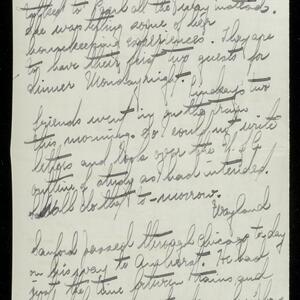 talked to Pearl all the way instead.
She was telling some of her
housekeeping experiences. They are
to have their first two guests for
dinner Monday night. Lindsay's two
friends went in on the train
this morning. So I could not write
letters and look over the
outline of study as I had intended.
Will do that to-morrow.
Wayland
Sanford passed through Chicago to-day
on his way to Amherst. He had
just the time between trains and